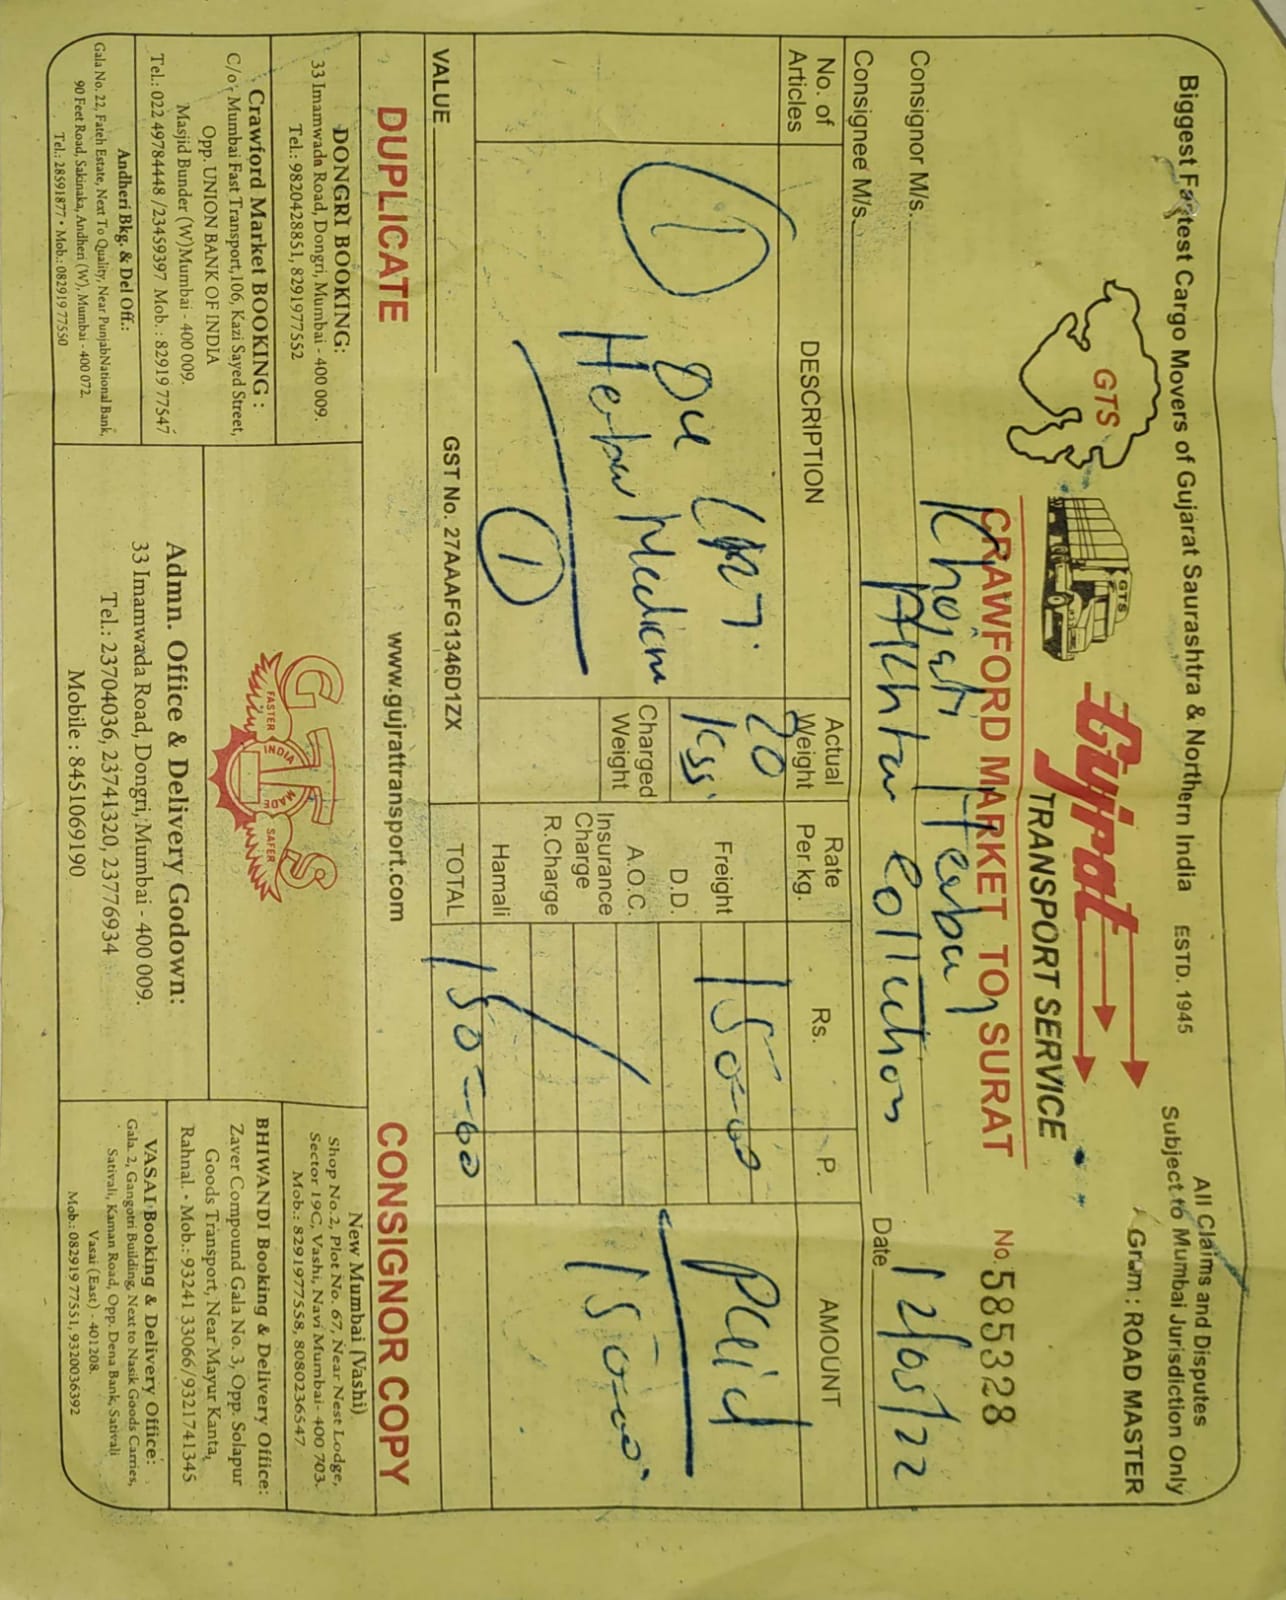 Biggest Fastest Cargo Movers of Gujarat Saurashtra & Northern India ESTD. 1945
All Claims and Disputes
Subject to Mumbai Jurisdiction Only
Gram : ROAD MASTER
GTS
GTS
Gujrat
TRANSPORT SERVICE
CRAWFORD MARKET TO SURAT
No. 5855328
Consignor M/s. Khojati Herbal
Consignee M/s. Akhtar Date 12/05/22
No. of Articles
DESCRIPTION
Actual Weight
Rate Per kg.
Rs.
P.
AMOUNT
1
Herbal
1
20
Charged Weight
Freight 150-00
D.D.
A.O.C.
Insurance Charge
R.Charge
Hamali
TOTAL 150-00
Paid
150-00
VALUE
GST No. 27AAAFG1346D1ZX
DUPLICATE
www.gujrattransport.com
CONSIGNOR COPY
DONGRI BOOKING:
33 Imamwada Road, Dongri, Mumbai - 400 009.
Tel.: 9820428851, 8291977552
Crawford Market BOOKING :
C/o. Mumbai Fast Transport,106, Kazi Sayed Street,
Opp. UNION BANK OF INDIA
Masjid Bunder (W)Mumbai - 400 009.
Tel.: 022 49784448 /23459397 Mob. : 82919 77547
Andheri Bkg. & Del Off.:
Gala No. 22, Fateh Estate, Next To Quality, Near PunjabNational Bank,
90 Feet Road, Sakinaka, Andheri (W), Mumbai - 400 072.
Tel.: 28591877 • Mob.: 082919 77550
GTS
FASTER
INDIA
MADE
SAFER
Admn. Office & Delivery Godown:
33 Imamwada Road, Dongri, Mumbai - 400 009.
Tel.: 23704036, 23741320, 23776934
Mobile : 8451069190
New Mumbai (Vashi)
Shop No.2, Plot No. 67, Near Nest Lodge,
Sector 19C, Vashi, Navi Mumbai- 400 703.
Mob.: 8291977558, 8080236547
BHIWANDI Booking & Delivery Office:
Zaver Compound Gala No. 3, Opp. Solapur
Goods Transport, Near Mayur Kanta,
Rahnal. • Mob.: 93241 33066/9321741345
VASAI Booking & Delivery Office:
Gala. 2, Gangotri Building, Next to Nasik Goods Carries,
Sativali, Kaman Road, Opp. Dena Bank, Sativali
Vasai (East) - 401208.
Mob.: 082919 77551, 9320036392